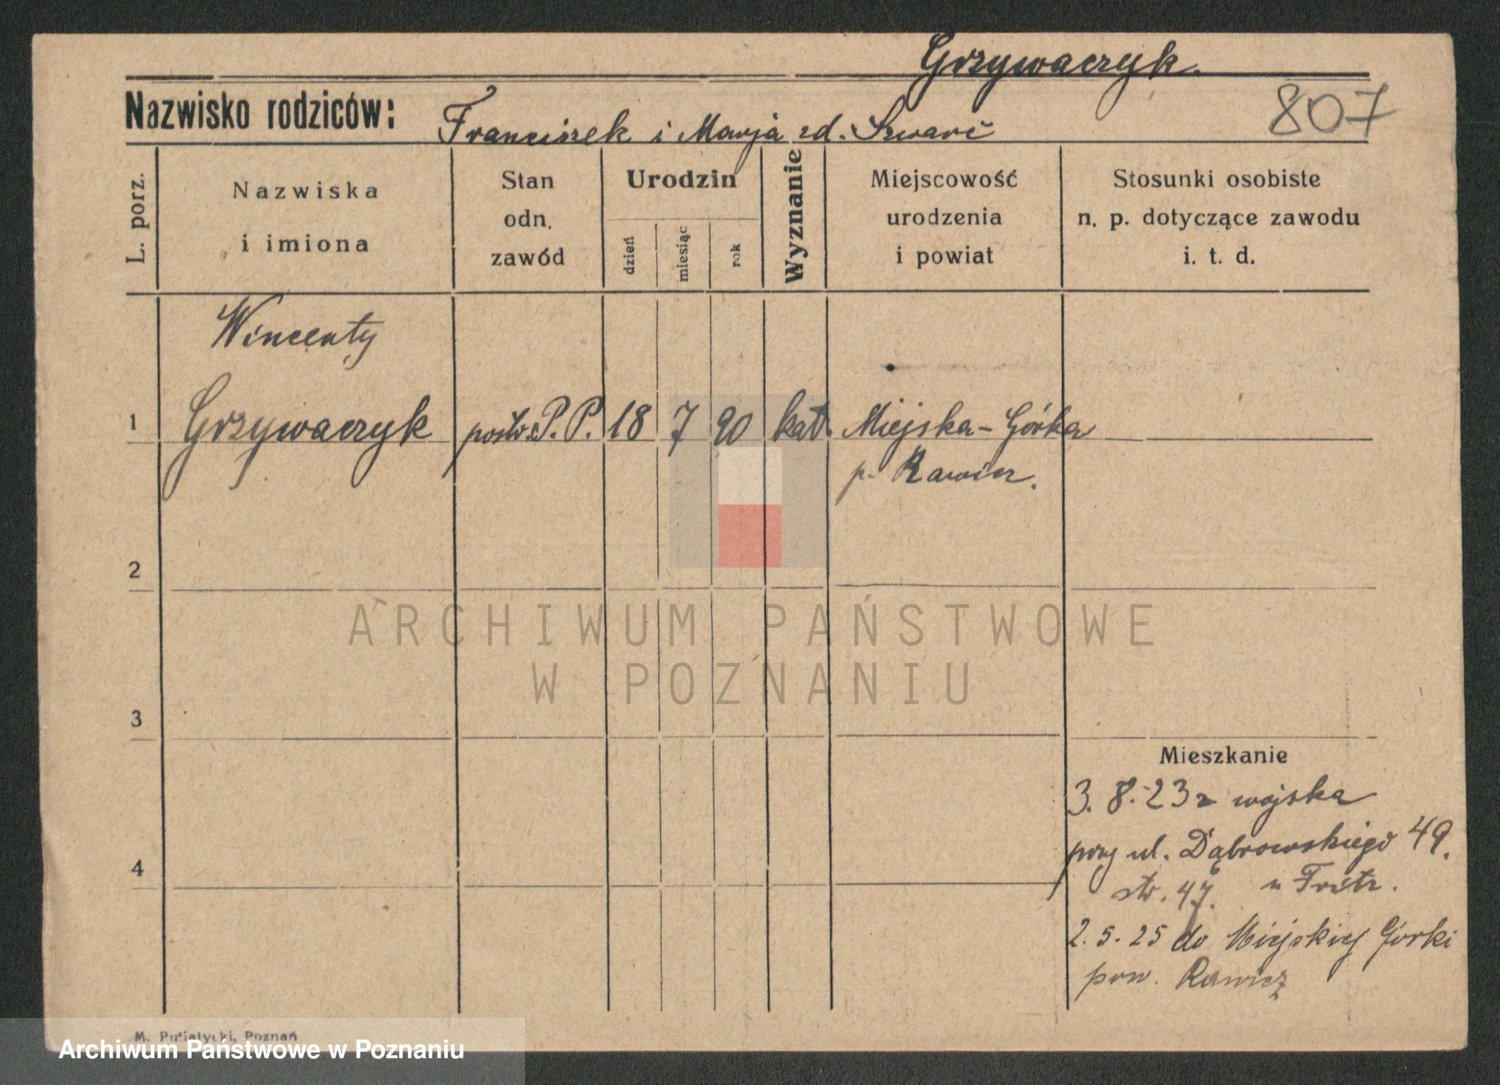 Grzywaczyk.
807
Nazwisko rodziców: Franciszek i Marja zd. Szwarc
L. porz.
Nazwiska
i imiona
Stan
odn.
zawód
Urodzin
dzień
miesiąc
rok
Wyznanie
Miejscowość
urodzenia
i powiat
Stosunki osobiste
n. p. dotyczące zawodu
i. t. d.
Wincenty
1 Grzywaczyk post. P.P. 18 7 90 kat. Miejska-Górka
p. Rawicz.
2
ARCHIWUM PAŃSTWOWE
W POZNANIU
3
Mieszkanie
3. 8. 23 z wojska
przy ul. Dąbrowskiego 49.
4
str. 47. u
2. 5. 25 do Miejskiej Górki
pow. Rawicz
M. Poznań
Archiwum Państwowe w Poznaniu